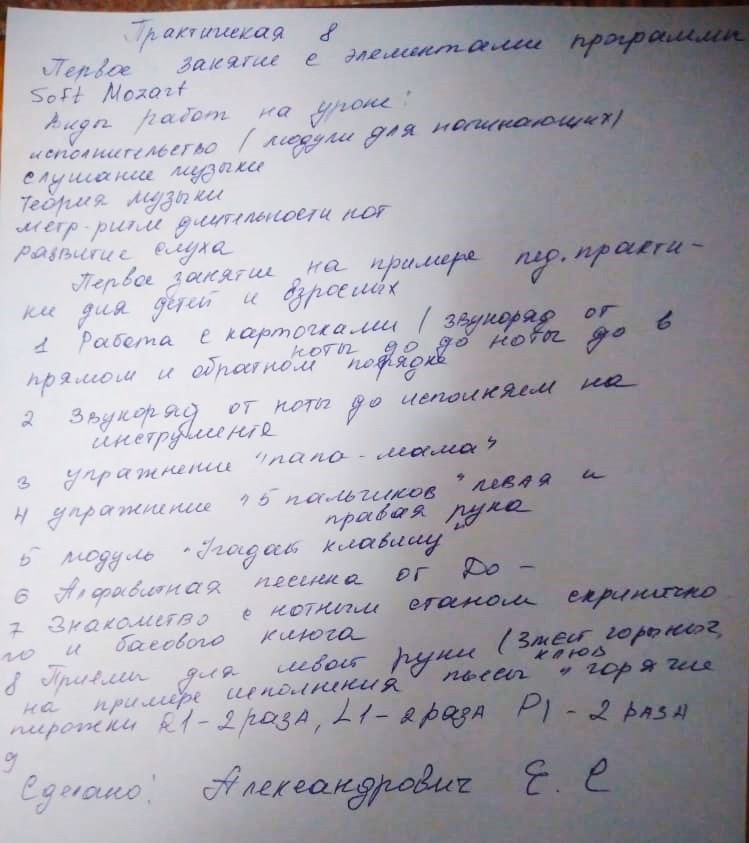 Практическая 8
Первое занятие с элементами программы
Soft Mozart
Виды работ на уроке:
исполнительство (модули для начинающих)
слушание музыки
теория музыки
метр-ритм длительности нот
развитие слуха
Первое занятие на примере пед. практи-
ки для детей и взрослых
1 Работа с карточками (звукоряд от
ноты до до ноты до в
прямом и обратном порядке
2 Звукоряд от ноты до исполняем на
инструменте
3 упражнение "папа-мама"
4 упражнение "5 пальчиков" левая и
правая рука
5 модуль "Угадай клавишу"
6 Алфавитная песенка от До -
7 Знакомство с нотным станом скрипично
го и басового ключа
8 Приёмы для левой руки (Змей горыныч,
клюв
на примере исполнения пьесы "горячие
пирожки R1-2 раза, L1-2 раза P1-2 раза
9
Сделано: Александрович Е. С